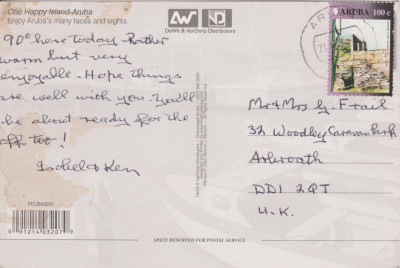 One Happy Island-Aruba
Enjoy Aruba's many faces and sights.
90° here today - Rather
warm but very
enjoyable - Hope things
are well with you. You'll
be about ready for the
off too!
& Ken
DeWit & VanDorp Distributors
ARUBA 100 c
Mr & Mrs G. Frail
32 Woodley Caravan Park
Arbroath
DD1 2QJ
U.K.
PCUBA3207
0 91214 03207 9
SPACE RESERVED FOR POSTAL SERVICE